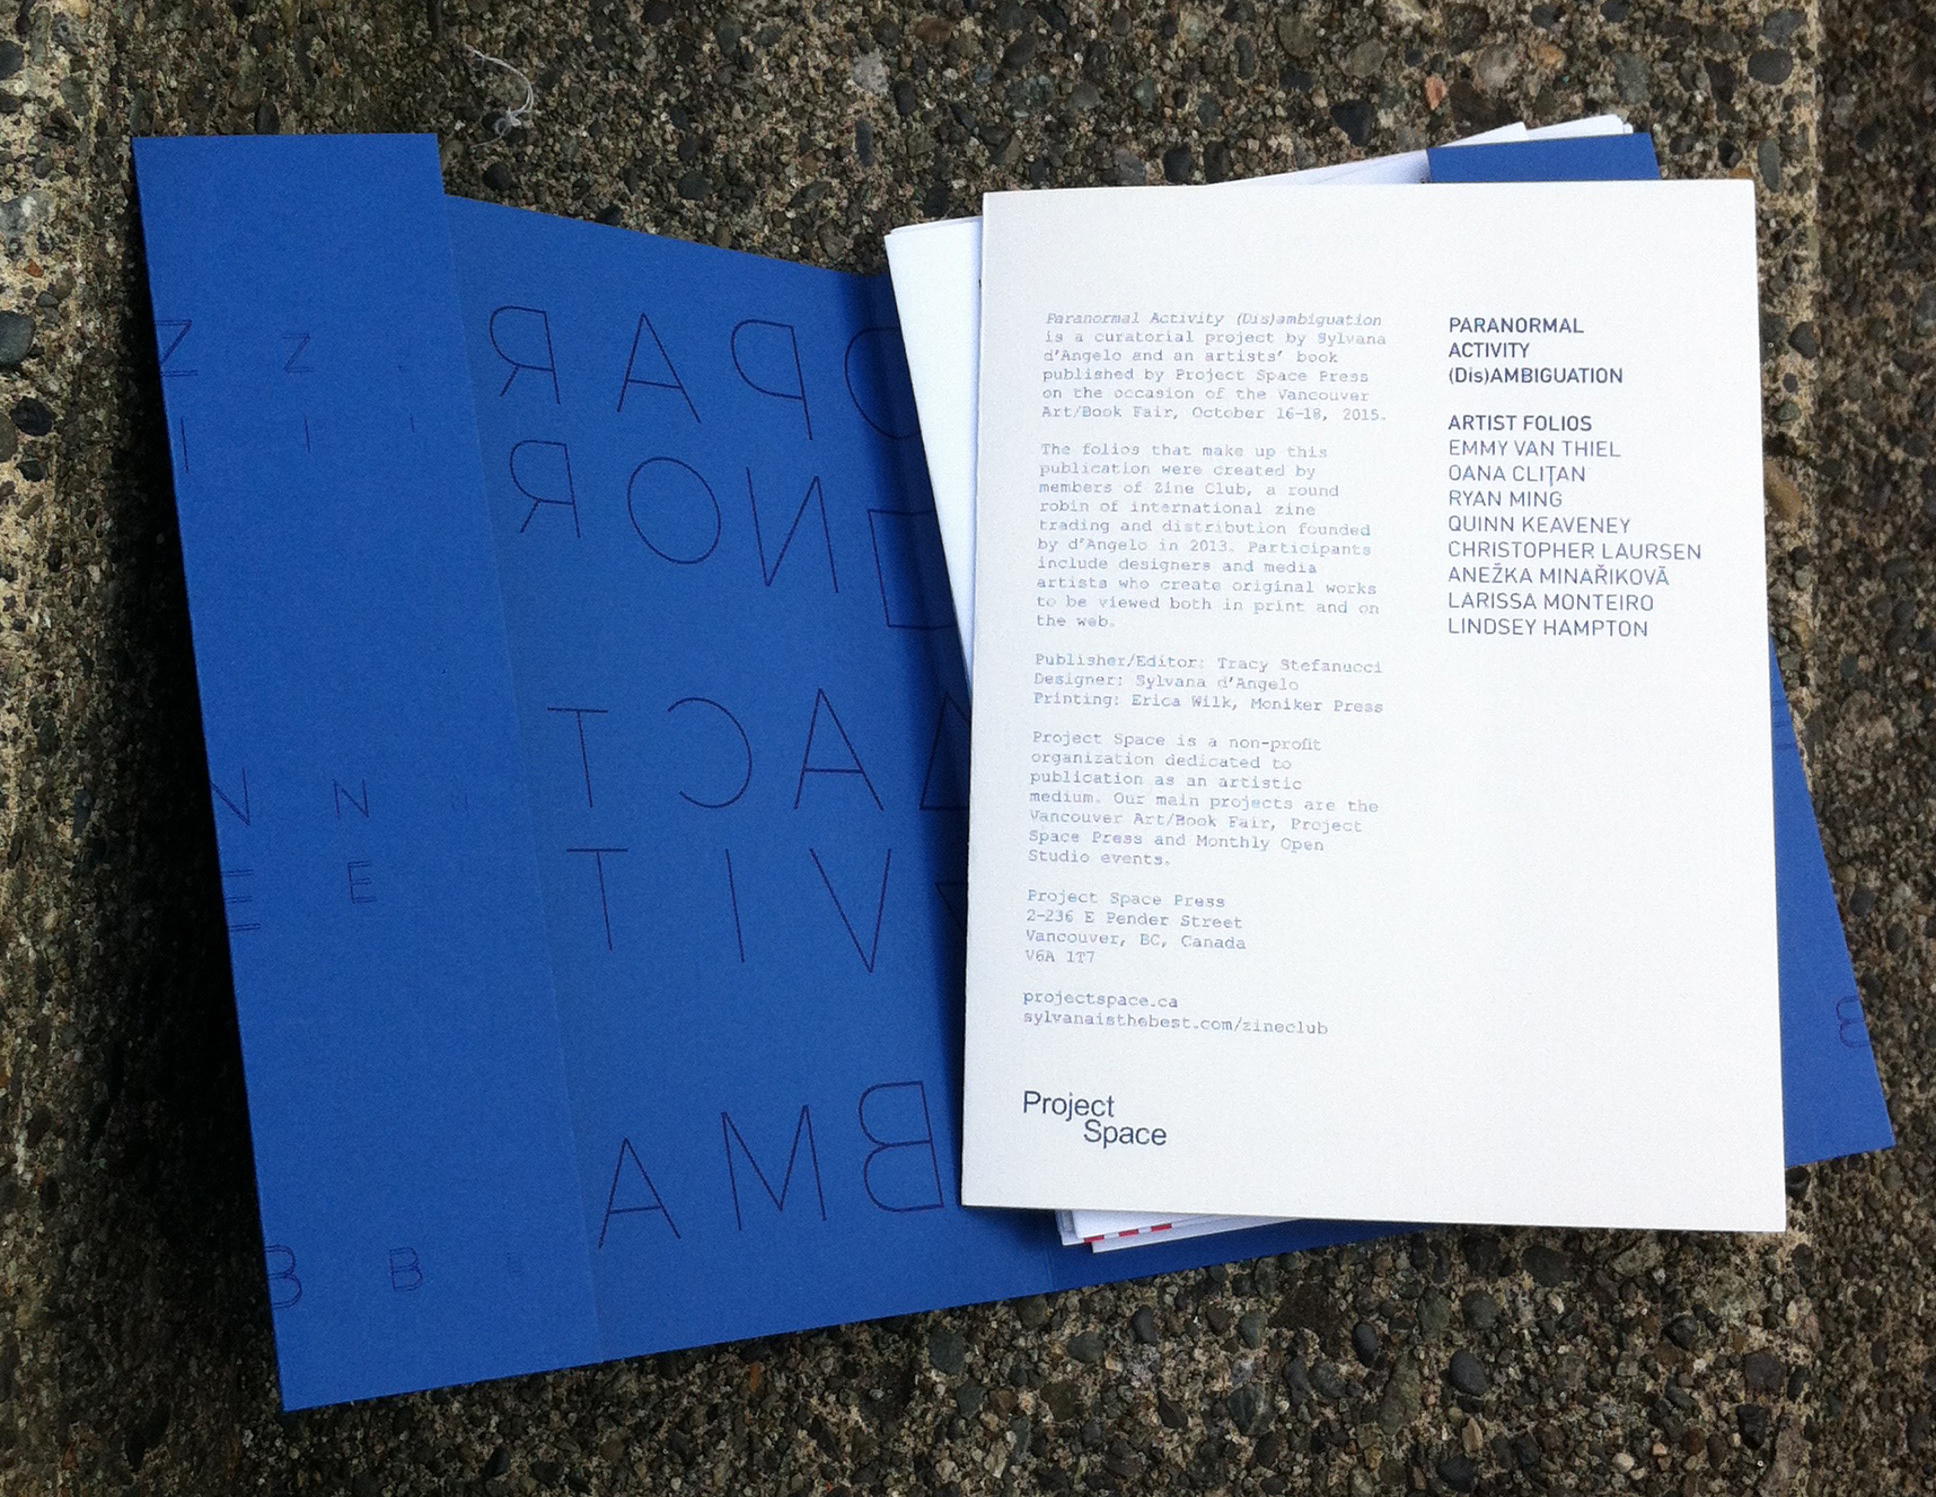 Z Z
I I I
N N
E E
B B
R A P O
R O N
T C A
T I V
A M B
Paranormal Activity (Dis)ambiguation
is a curatorial project by Sylvana
d'Angelo and an artists' book
published by Project Space Press
on the occasion of the Vancouver
Art/Book Fair, October 16-18, 2015.
The folios that make up this
publication were created by
members of Zine Club, a round
robin of international zine
trading and distribution founded
by d'Angelo in 2013. Participants
include designers and media
artists who create original works
to be viewed both in print and on
the web.
Publisher/Editor: Tracy Stefanucci
Designer: Sylvana d'Angelo
Printing: Erica Wilk, Moniker Press
Project Space is a non-profit
organization dedicated to
publication as an artistic
medium. Our main projects are the
Vancouver Art/Book Fair, Project
Space Press and Monthly Open
Studio events.
Project Space Press
2-236 E Pender Street
Vancouver, BC, Canada
V6A 1T7
projectspace.ca
sylvanaisthebest.com/zineclub
Project
Space
PARANORMAL
ACTIVITY
(Dis)AMBIGUATION
ARTIST FOLIOS
EMMY VAN THIEL
OANA CLIȚAN
RYAN MING
QUINN KEAVENEY
CHRISTOPHER LAURSEN
ANEŽKA MINAŘIKOVÃ
LARISSA MONTEIRO
LINDSEY HAMPTON
B